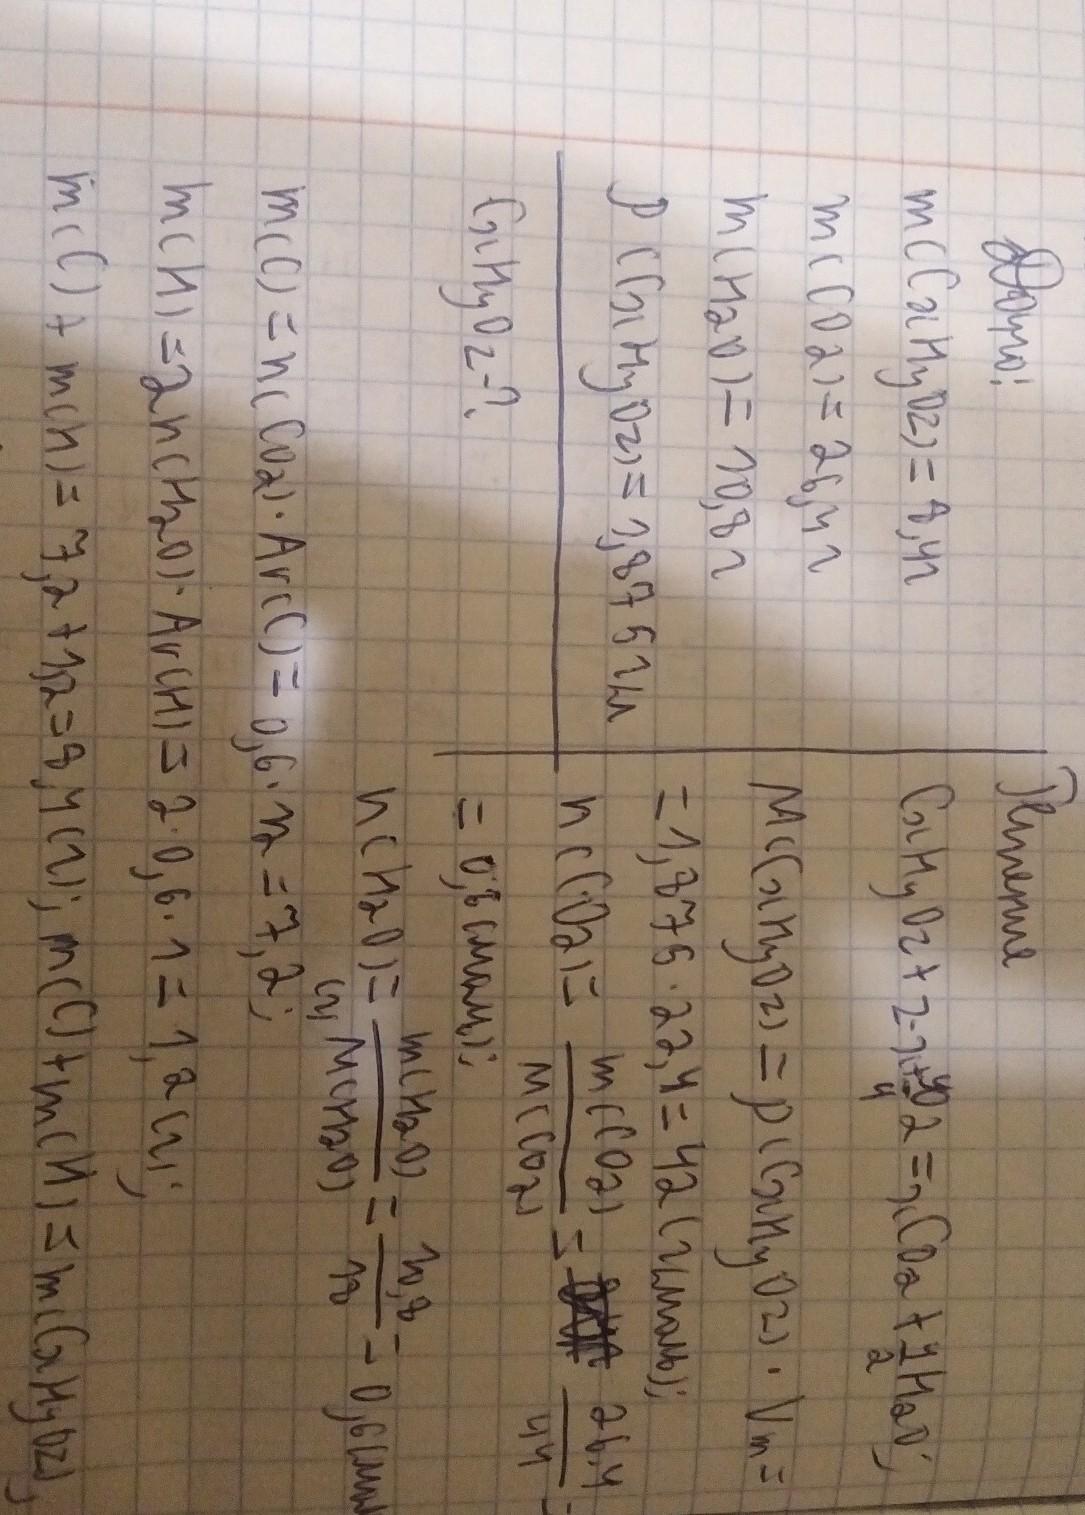 Дано:
m(CxHyOz) = 8,4г
m(CO2) = 26,4г
m(H2O) = 10,8г
ρ(CxHyOz) = 1,875 г/л
CxHyOz-?
Решение
M(CxHyOz) = ρ(CxHyOz) · Vm =
= 1,875 · 22,4 = 42 (г/моль);
n(CO2) = m(CO2)/M(CO2) = 26,4/44 =
= 0,6 (моль);
n(H2O) = m(H2O)/M(H2O) = 10,8/18 = 0,6(моль
m(C) = n(CO2) · Ar(C) = 0,6 · 12 = 7,2 (г);
m(H) = 2n(H2O) · Ar(H) = 2 · 0,6 · 1 = 1,2 (г);
m(C) + m(H) = 7,2 + 1,2 = 8,4 (г); m(C) + m(H) = m(CxHyOz),